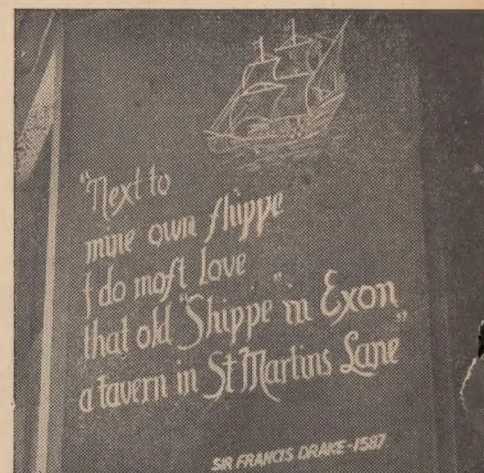 "Next to
mine own ſhippe
I do moſt Love
that old "Shippe" in Exon,
a tavern in St Martins Lane"
SIR FRANCIS DRAKE-1587